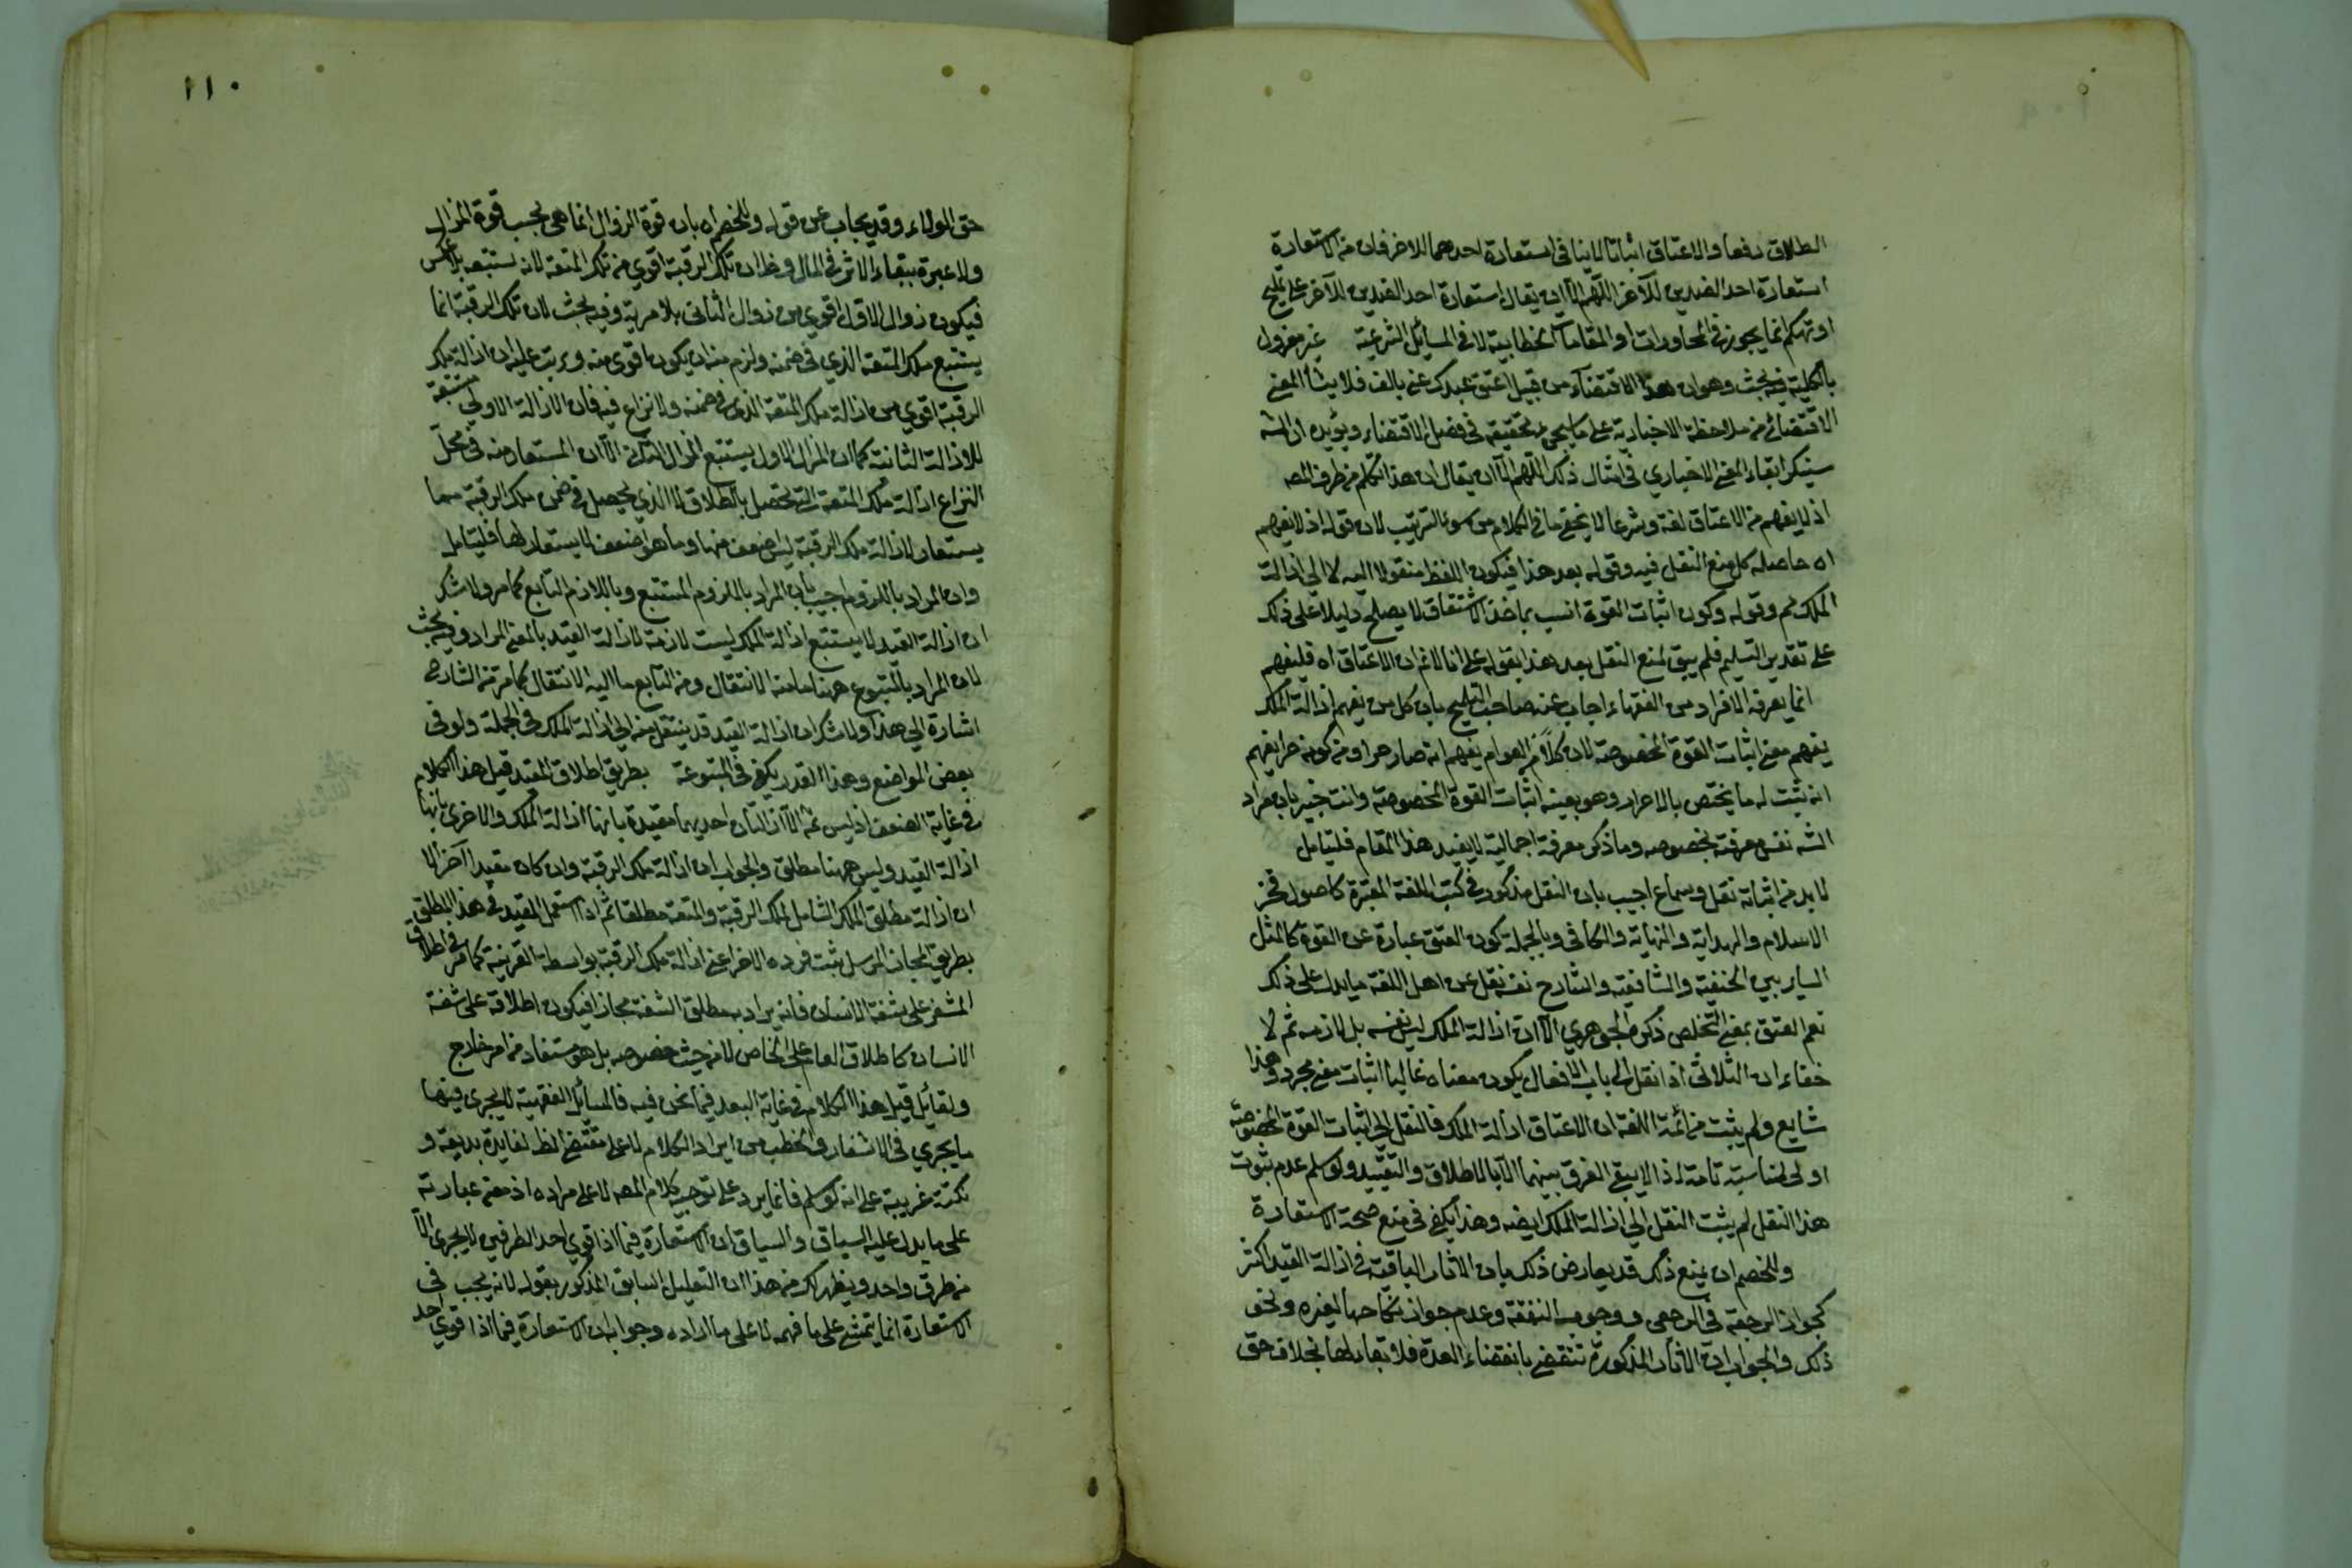 الطلاق رفعا والاعتاق اثباتا لا ينافي استعارة احدهما للاخر فان من الاستعارة
استعارة احد الضدين للآخر اللهم الا ان يقال استعارة احد الضدين للآخر على تمليح
او تهكم انما يجوز في المحاورات او المقامات الخطابية لا في المسائل الشرعية غير معزول
بالكلية فيه بحث وهو ان هذا الاقتضاء من قبيل اعتق عبدك عني بالف فلا ينشأ المعنى
الاقتضائي من ملاحظة الاخبارية على ما يجيء تحقيقه في فصل الاقتضاء ويؤيده ان الشه
سينكر ابقاء المعنى الاخباري في امثال ذلك اللهم الا ان يقال ان هذا تكلم من طرف المصه
اذ لا يفهم من الاعتاق لغة وشرعا لا يخفى ما في الكلام من سوء الترتيب لان قوله اذ لا يفهم
اه حاصله كل منع النقل فيه وقوله بعد هذا فيكون اللفظ منقولا اليه لا الى ازالة
الملك ثم وقوله وكون اثبات القوة انسب بماخذ الاشتقاق لا يصلح دليلا على ذلك
على تقدير التسليم فلم يبق لمنع النقل بعد هذا بقوله على انا لا نم ان الاعتاق اه فليفهم
انما يعرفه الافراد من الفقهاء اجاب عنه صاحب التلويح بان كل من يفهم ازالة الملك
يفهم معنى اثبات القوة المخصوصة لان كلا من العوام يفهم انه صار حرا ومن كونه حرا يفهم
انه يثبت له ما يختص بالاحرار وهو بعينه اثبات القوة المخصوصة وانت خبير بان مراد
الشه نفي معرفته بخصوصه وما ذكر معرفة اجمالية لا يفيد هذا المقام فليتامل
لا بد من اثباته نقل وسماع اجيب بان النقل مذكور في كتب اللغة المعتبرة كاصول فخر
الاسلام والهداية والنهاية والكافي وبالجملة كون العتق عبارة عن القوة كالمثل
الساير بين الحنفية والشافعية والشارح نفسه نقل عن اهل اللغة ما يدل على ذلك
نعم العتق بمعنى التخلص ذكره الجوهري الا ان ازالة الملك ليس نفسه بل لازمه ثم لا
خفاء ان الثلاثي اذا نقل الى باب الافعال يكون معناه غالبا اثبات معنى مجرده وهذا
شايع ولم يثبت من ائمة اللغة ان الاعتاق ازالة الملك فالنقل الى اثبات القوة المخصوصة
اولى لمناسبة تامة اذ لا يبقى الفرق بينهما الا بالاطلاق والتقييد ولو سلم عدم ثبوت
هذا النقل لم يثبت النقل الى ازالة الملك ايضه وهذا يكفي في منع صحة الاستعارة
وللخصم ان يمنع ذلك قد يعارض ذلك بان الاثار الباقية في ازالة القيد اكثر
كجواز الرجعة في الرجعي ووجوب النفقة وعدم جواز نكاحها لغيره ونحو
ذلك والجواب ان الاثار المذكورة تنقضي بانقضاء العدة فلا بقاء لها بخلاف حق
١١٠
حق الولاء وقد يجاب عن قوله وللخصم اه بان قوة الزوال انما هي بحسب قوة المزال
ولا عبرة ببقاء الاثر في المال وظ ان ملك الرقبة اقوى من ملك المتعة لانه يستتبعه بلا عكس
فيكون زوال الاول اقوى من زوال الثاني بلا مرية وفيه بحث لان ملك الرقبة انما
يستتبع ملك المتعة الذي في ضمنه ولزم منه ان يكون اقوى منه ويرتب عليه ان ازالة ملك
الرقبة اقوى من ازالة ملك المتعة الذي في ضمنه ولا نزاع فيه فان الازالة الاولى مستتبعة
للازالة الثانية كما ان المزال الاول يستتبع المزال الثاني الا ان المستعار منه في محل
النزاع ازالة ملك المتعة التي تحصل بالطلاق لا الذي يحصل في ضمن ملك الرقبة مما
يستعار لازالة ملك الرقبة ليس اضعف منها وما هو اضعف لا يستعار لها فليتامل
وان المراد باللزوم اجيب بان المراد بالملزوم المستتبع وباللازم التابع كما مر ولا شك
ان ازالة القيد لا يستتبع ازالة الملك ليست لازمة لازالة القيد بالمعنى المراد وفيه بحث
لان المراد بالمتبوع ههنا ما منه الانتقال ومن التابع ما اليه الانتقال كما مر من الشارح
اشارة الى هذا ولا شك ان ازالة القيد قد ينتقل منه الى ازالة الملك في الجملة ولو في
بعض المواضع وهذا القدر يكفي في المتبوعة بطريق اطلاق المقيد قيل هذا الكلام
في غاية الضعف اذ ليس ثمه الا ازالتان احديهما مقيدة بانها ازالة الملك والاخرى بانها
ازالة القيد وليس ههنا مطلق والجواب ان ازالة ملك الرقبة وان كان مقيدا آخر الا
ان ازالة مطلق الملك الشامل لملك الرقبة والمتعة مطلقا ثم اذا استعمل المقيد في هذا المطلق
بطريق المجاز المرسل يثبت فرده الاخر اعني ازالة ملك الرقبة بواسطة القرينة كما مر في اطلاق
المشفر على شفة الانسان فانه يراد به مطلق الشفة مجازا فيكون اطلاقه على شفة
الانسان كاطلاق العام على الخاص لا من حيث خصوصه بل هو مستفاد من امر خارج
ولقائل قيل هذا الكلام في غاية البعد فيما نحن فيه فالمسائل الفقهية لا يجري فيها
ما يجري في الاشعار والخطب من ايراد الكلام لا على مقتضى الظ لفايدة بديعة و
نكتة غريبة على انه لو سلم فانما يرد على توجيه كلام المصه لا على مراده اذ معنى عبارته
على ما يدل عليه السياق والسباق ان الاستعارة فيما اذا قوي احد الطرفين لا يجري الا
من طرف واحد ويظهر لك من هذا ان التعليل السابق المذكور بقوله لانه يجب في
الاستعارة انما يتمشى على ما فهمه لا على ما اراده وجوابه ان الاستعارة فيما اذا قوي احد